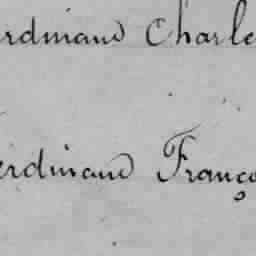 erdinand Charle
erdinand Franço